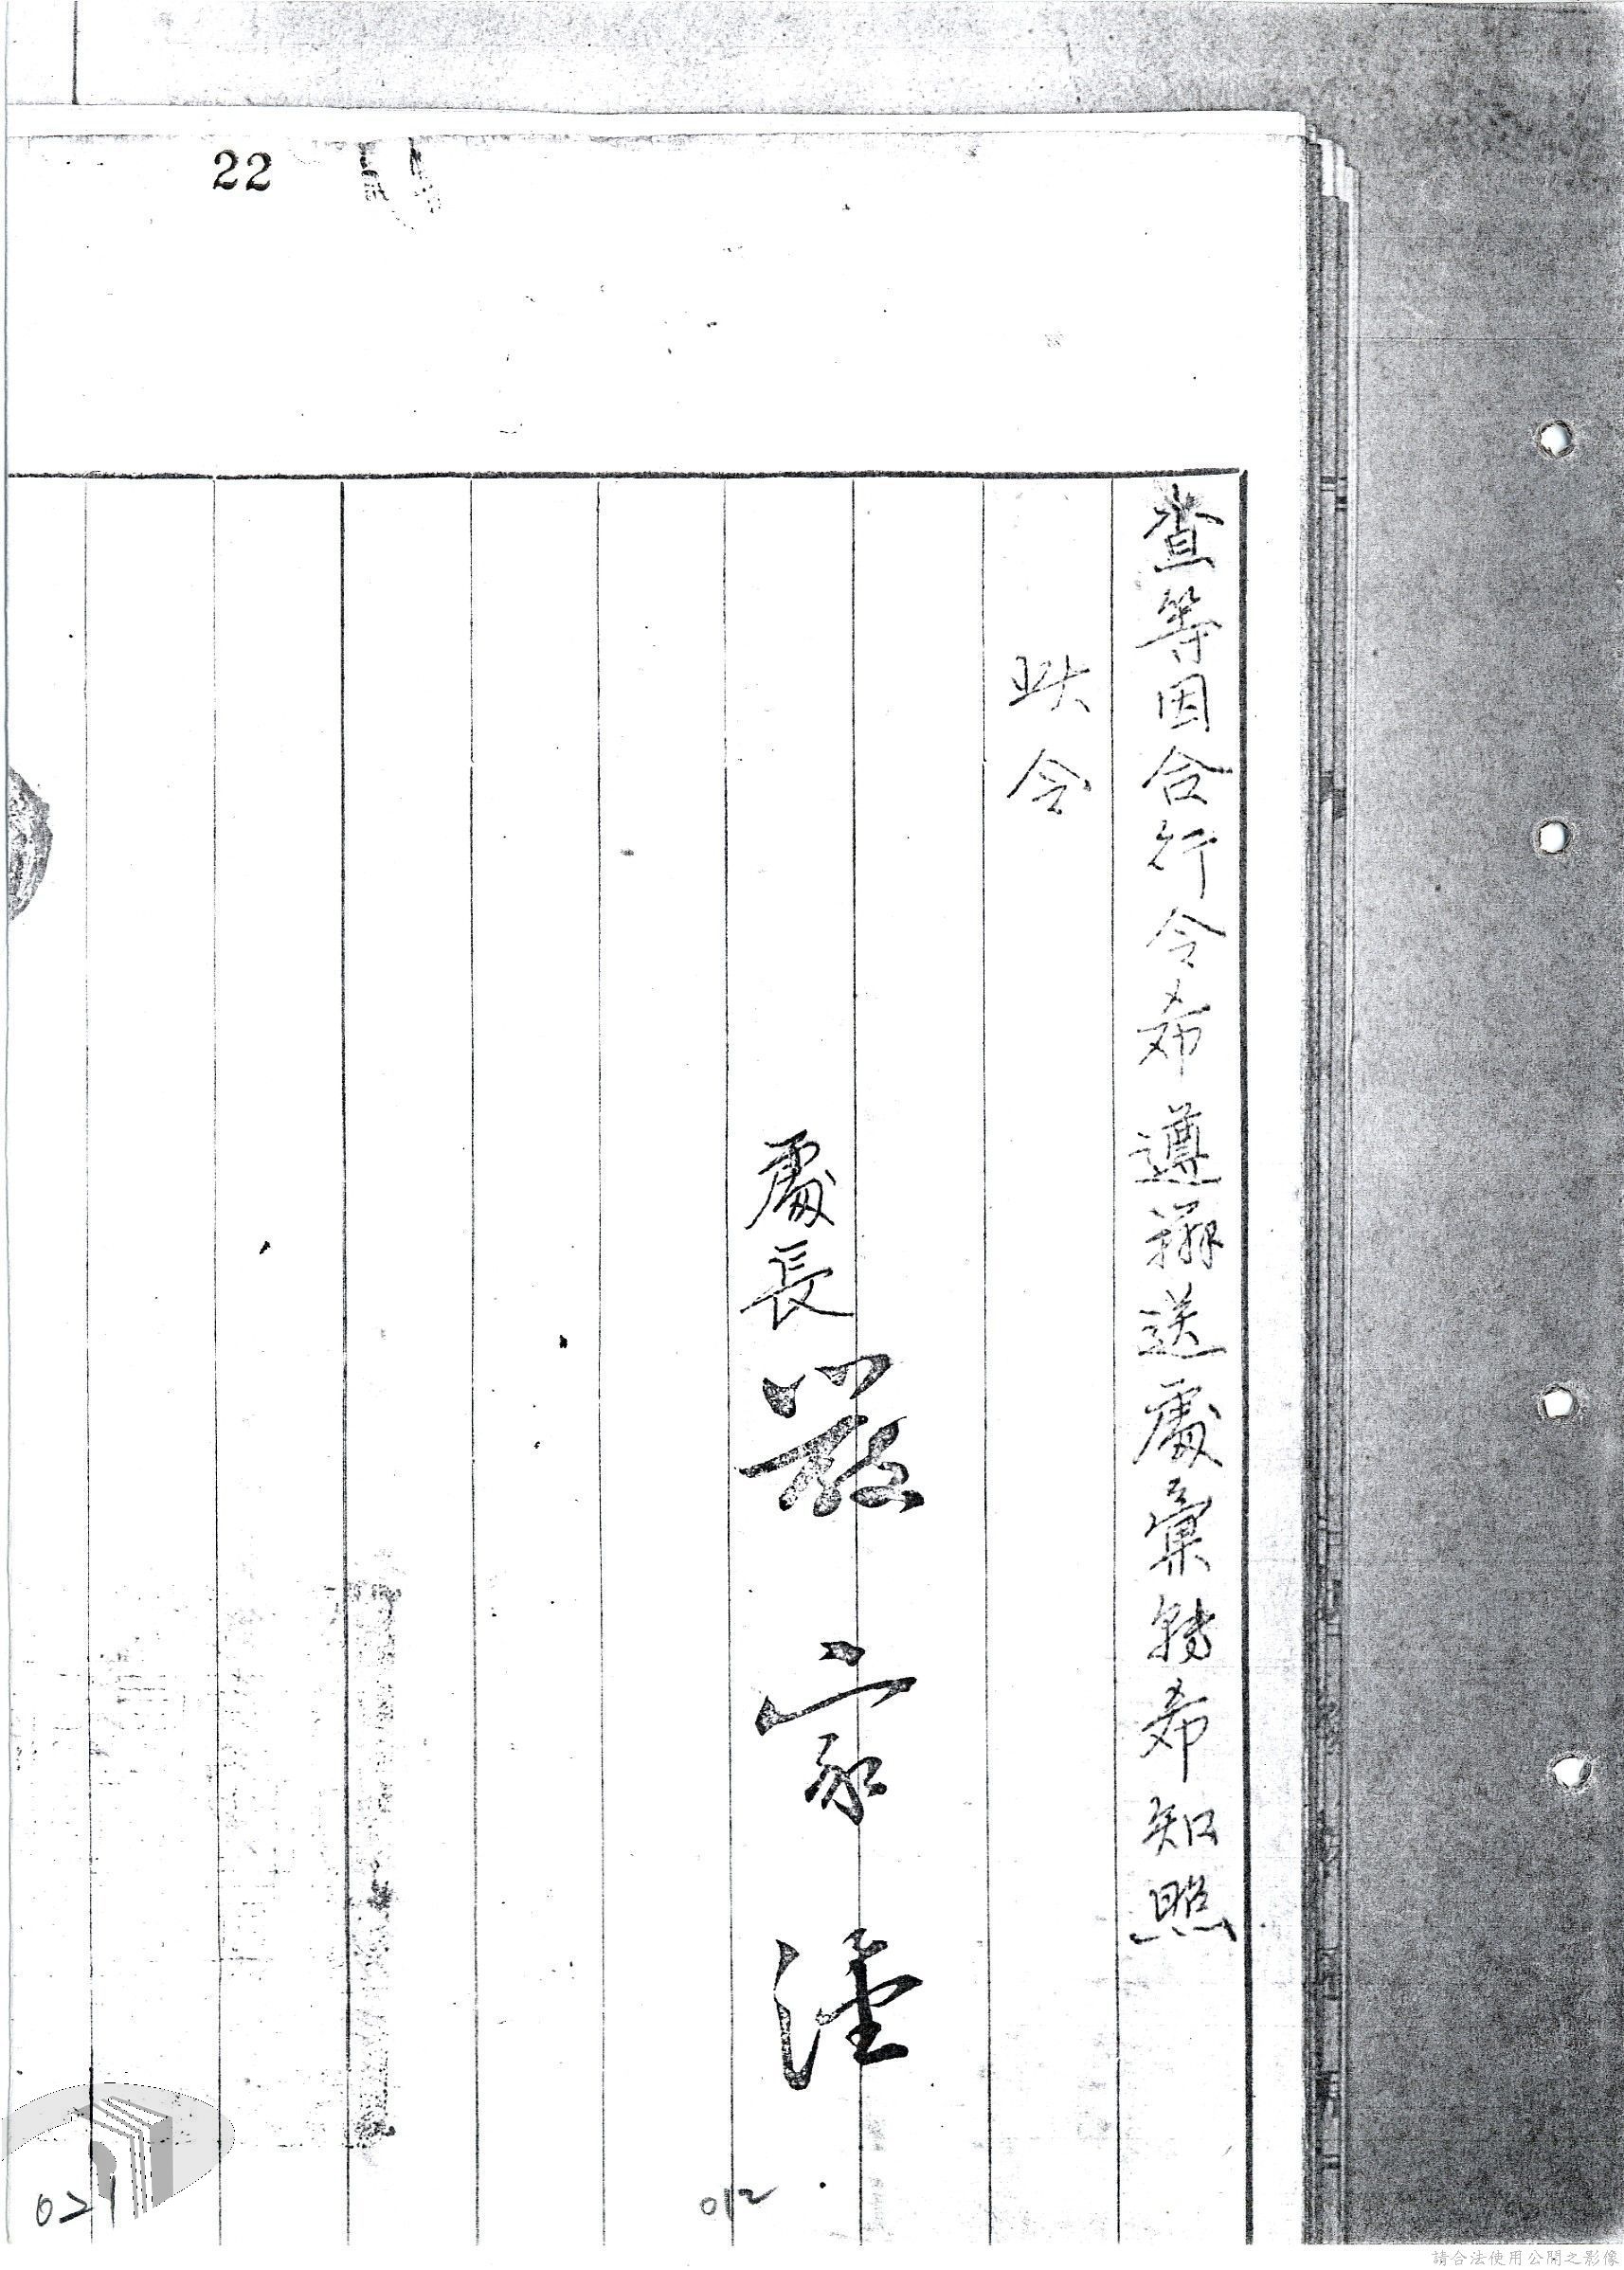 22
查等因合行令希遵辦送處彙轉希知照
此令
處長嚴家淦
012
021
請合法使用公開之影像